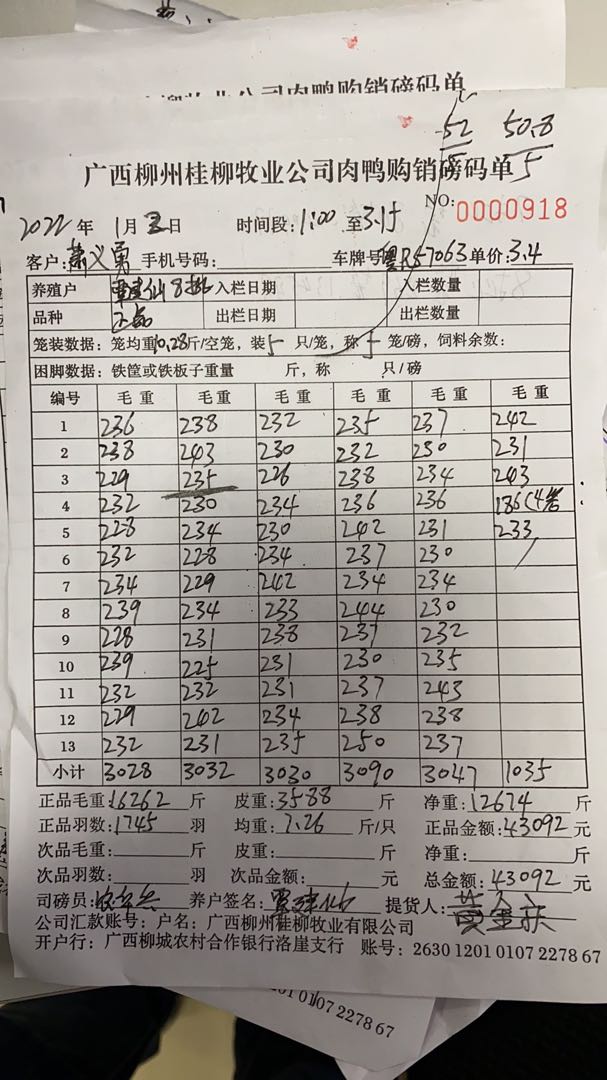 广西柳州桂柳牧业公司肉鸭购销磅码单
52 50.8
5
广西柳州桂柳牧业公司肉鸭购销磅码单
NO: 0000918
2022年 1月 日 时间段:1:00 至3.15
客户:萧义勇 手机号码: 车牌号:粤R57063 单价:3.4
养殖户 覃建仙8批 入栏日期 入栏数量
品种 正品 出栏日期 出栏数量
笼装数据:笼均重10.28斤/空笼,装5只/笼,称5笼/磅,饲料余数:
困脚数据:铁筐或铁板子重量 斤,称 只/磅
编号 毛重 毛重 毛重 毛重 毛重 毛重
1 236 238 232 235 237 242
2 238 243 230 232 230 231
3 229 235 226 238 234 243
4 232 230 234 236 236 186(4笼
5 228 234 230 242 231 233
6 232 228 234 237 230 /
7 234 229 242 234 234
8 239 234 233 244 230
9 228 231 238 237 232
10 239 225 231 230 235
11 232 232 231 237 243
12 229 242 234 238 238
13 232 231 235 250 237
小计 3028 3032 3030 3090 3047 1035
正品毛重:16262斤 皮重:3588斤 净重:12674斤
正品羽数:1745羽 均重:7.26斤/只 正品金额:43092元
次品毛重: 斤 皮重: 斤 净重: 斤
次品羽数: 羽 次品金额: 元 总金额:43092元
司磅员: 养户签名:覃建仙 提货人:
公司汇款账号:户名:广西柳州桂柳牧业有限公司
开户行:广西柳城农村合作银行洛崖支行 账号:2630 1201 0107 2278 67
01 0107 2278 67